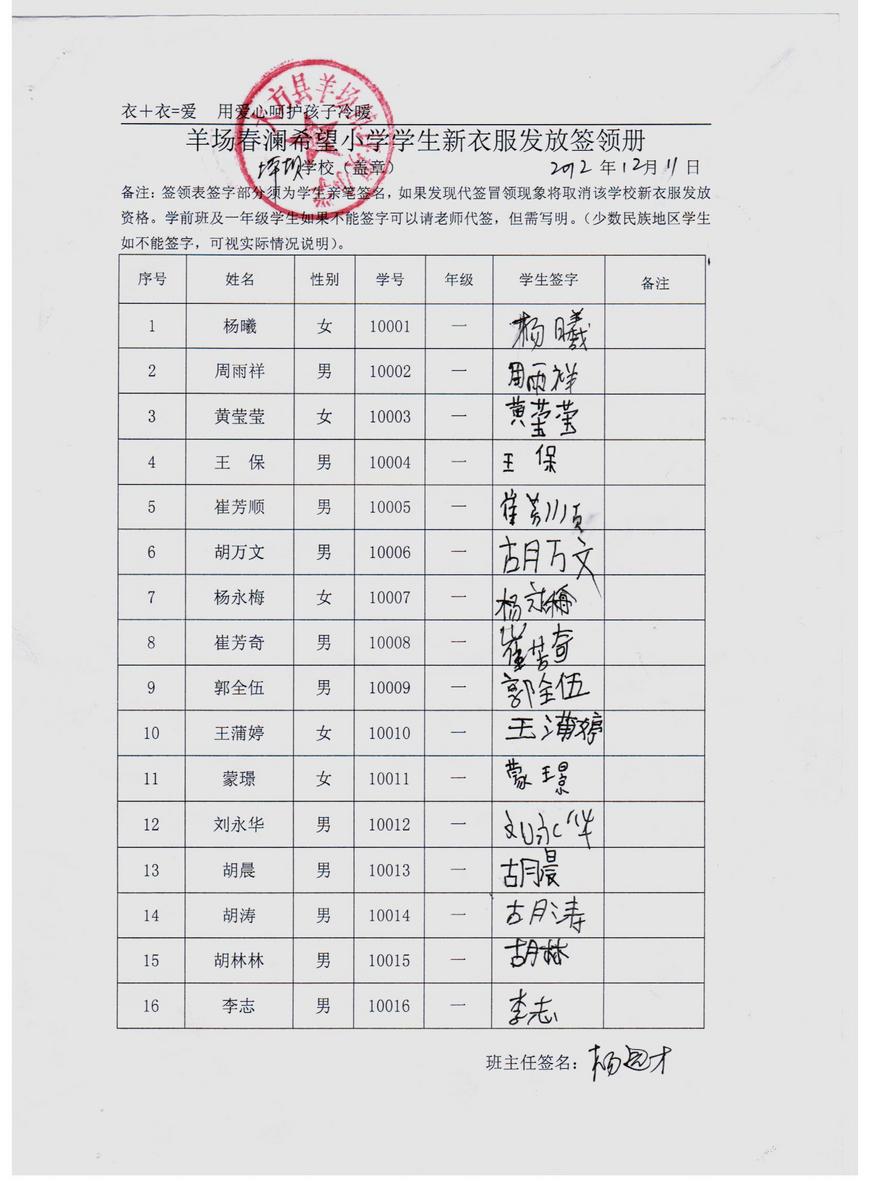 衣＋衣=爱 用爱心呵护孩子冷暖
羊场春澜希望小学学生新衣服发放签领册
坪坝学校（盖章） 2012 年 12月 11 日
备注：签领表签字部分须为学生亲笔签名，如果发现代签冒领现象将取消该学校新衣服发放
资格。学前班及一年级学生如果不能签字可以请老师代签，但需写明。（少数民族地区学生
如不能签字，可视实际情况说明）。
序号 姓名 性别 学号 年级 学生签字 备注
1 杨曦 女 10001 一 杨曦
2 周雨祥 男 10002 一 周雨祥
3 黄莹莹 女 10003 一 黄莹莹
4 王 保 男 10004 一 王 保
5 崔芳顺 男 10005 一 崔芳顺
6 胡万文 男 10006 一 胡万文
7 杨永梅 女 10007 一 杨永梅
8 崔芳奇 男 10008 一 崔芳奇
9 郭全伍 男 10009 一 郭全伍
10 王蒲婷 女 10010 一 王蒲婷
11 蒙璟 女 10011 一 蒙璟
12 刘永华 男 10012 一 刘永华
13 胡晨 男 10013 一 胡晨
14 胡涛 男 10014 一 胡涛
15 胡林林 男 10015 一 胡林
16 李志 男 10016 一 李志
班主任签名：杨 才